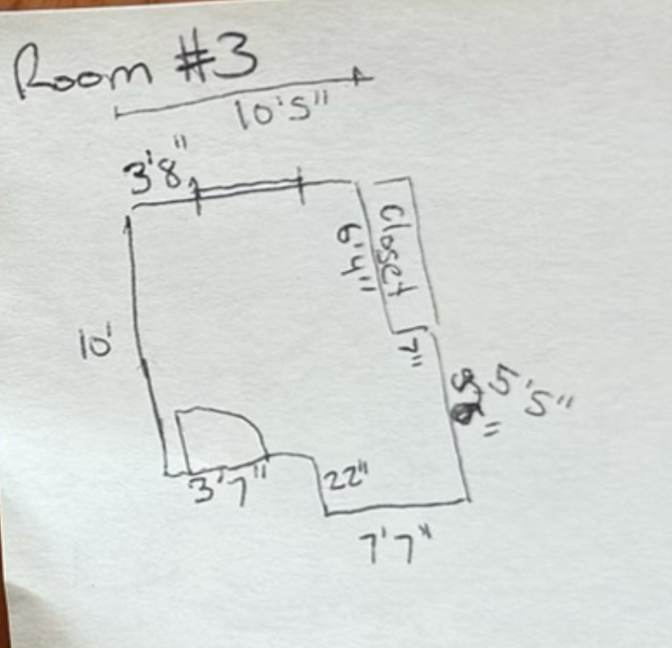 Room #3
10'5"
3'8"
6'4"
Closet
10'
7"
5'5"
22"
3'7"
7'7"